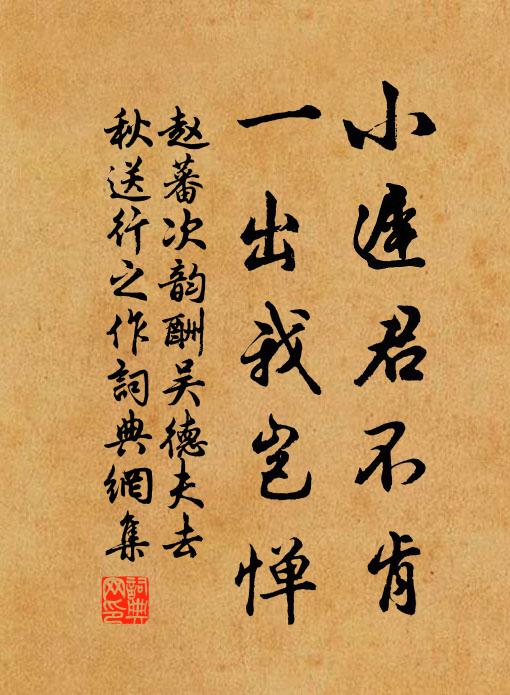 小遲君不肯
一出我岂惮
赵蕃次韵酬吴德夫去
秋送行之作詞典網集